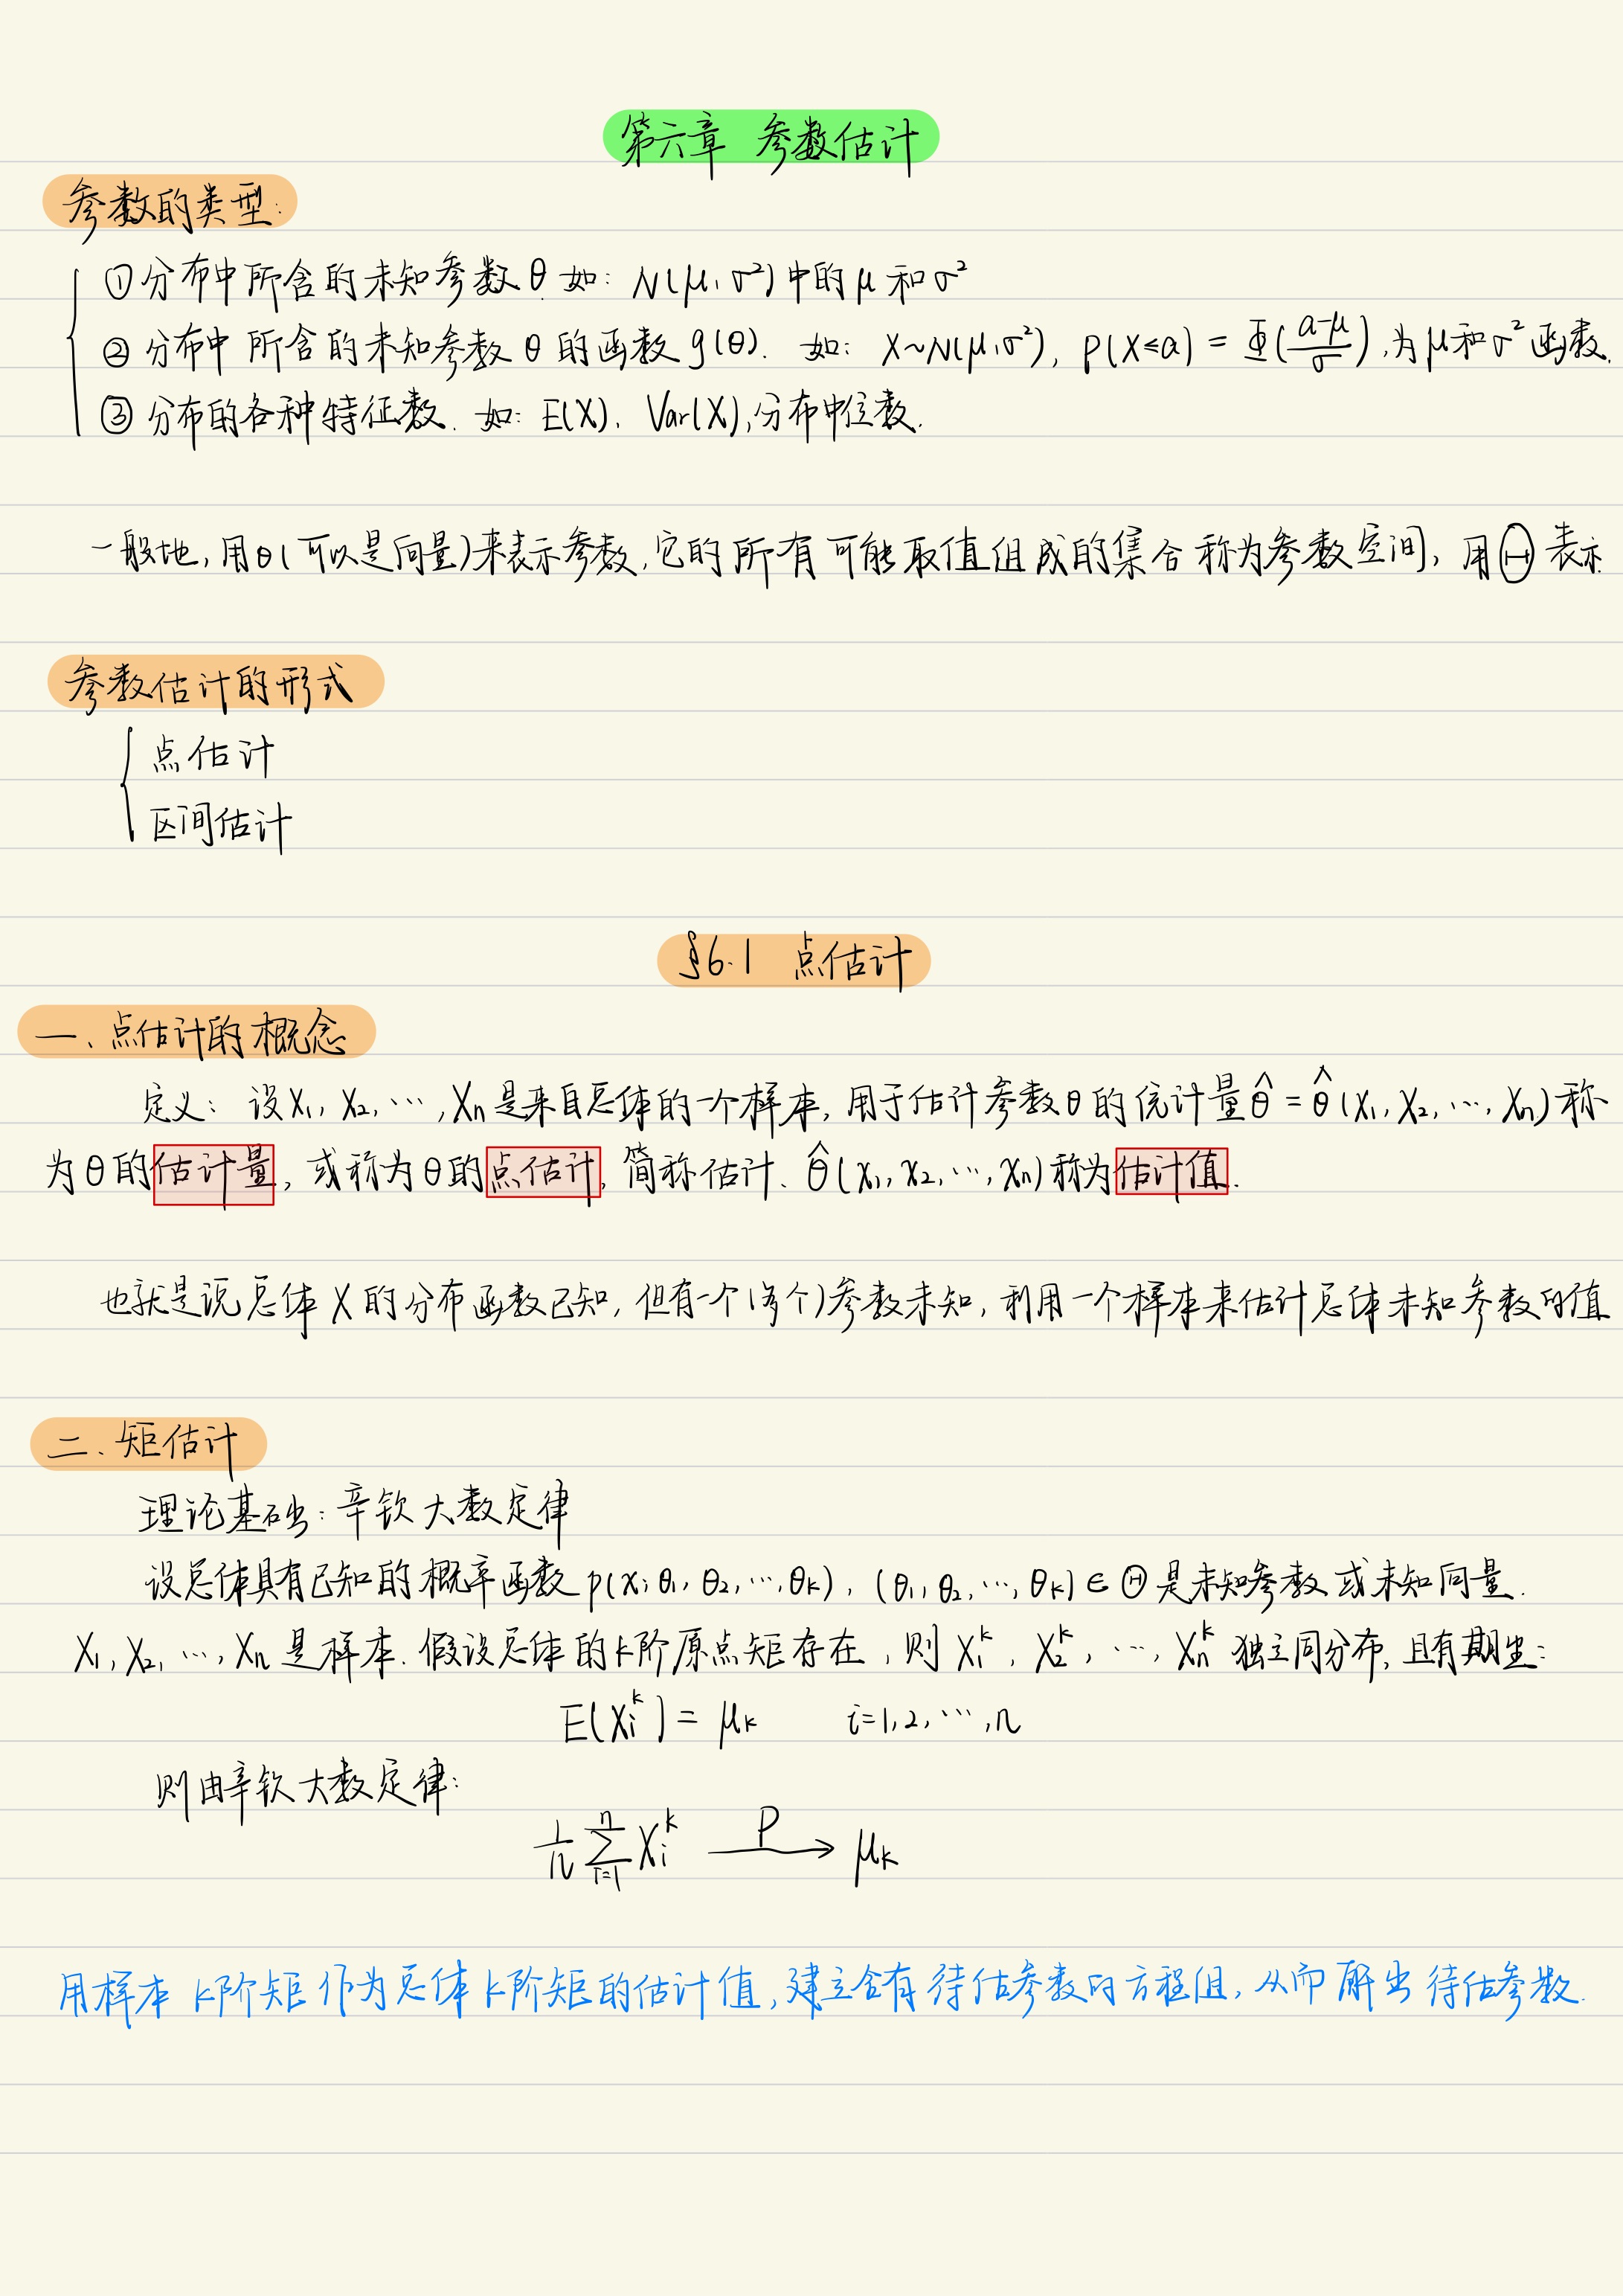 第六章 参数估计
参数的类型:
①分布中所含的未知参数θ.如: N(μ,σ²)中的μ和σ²
②分布中所含的未知参数θ的函数g(θ). 如: X~N(μ,σ²), P(X≤a) = Φ((a-μ)/σ),为μ和σ²函数.
③分布的各种特征数. 如: E(X), Var(X),分布中位数.
一般地,用θ(可以是向量)来表示参数,它的所有可能取值组成的集合称为参数空间, 用Θ表示.
参数估计的形式
点估计
区间估计
§6.1 点估计
一、点估计的概念
定义: 设X₁, X₂, ⋯, Xₙ是来自总体的一个样本, 用于估计参数θ的统计量θ̂ = θ̂(X₁, X₂, ⋯, Xₙ)称
为θ的估计量, 或称为θ的点估计, 简称估计. θ̂(x₁, x₂, ⋯, xₙ)称为估计值.
也就是说总体X的分布函数已知, 但有一个(多个)参数未知, 利用一个样本来估计总体未知参数的值
二、矩估计
理论基础: 辛钦大数定律
设总体具有已知的概率函数p(x; θ₁, θ₂, ⋯, θₖ), (θ₁, θ₂, ⋯, θₖ)∈Θ是未知参数或未知向量.
X₁, X₂, ⋯, Xₙ是样本. 假设总体的k阶原点矩存在, 则X₁ᵏ, X₂ᵏ, ⋯, Xₙᵏ独立同分布, 且有期望:
E(Xᵢᵏ) = μₖ i=1,2,⋯,n
则由辛钦大数定律:
1/n ∑ᵢ₌₁ⁿ Xᵢᵏ —P→ μₖ
用样本k阶矩作为总体k阶矩的估计值, 建立含有待估参数的方程组, 从而解出待估参数.